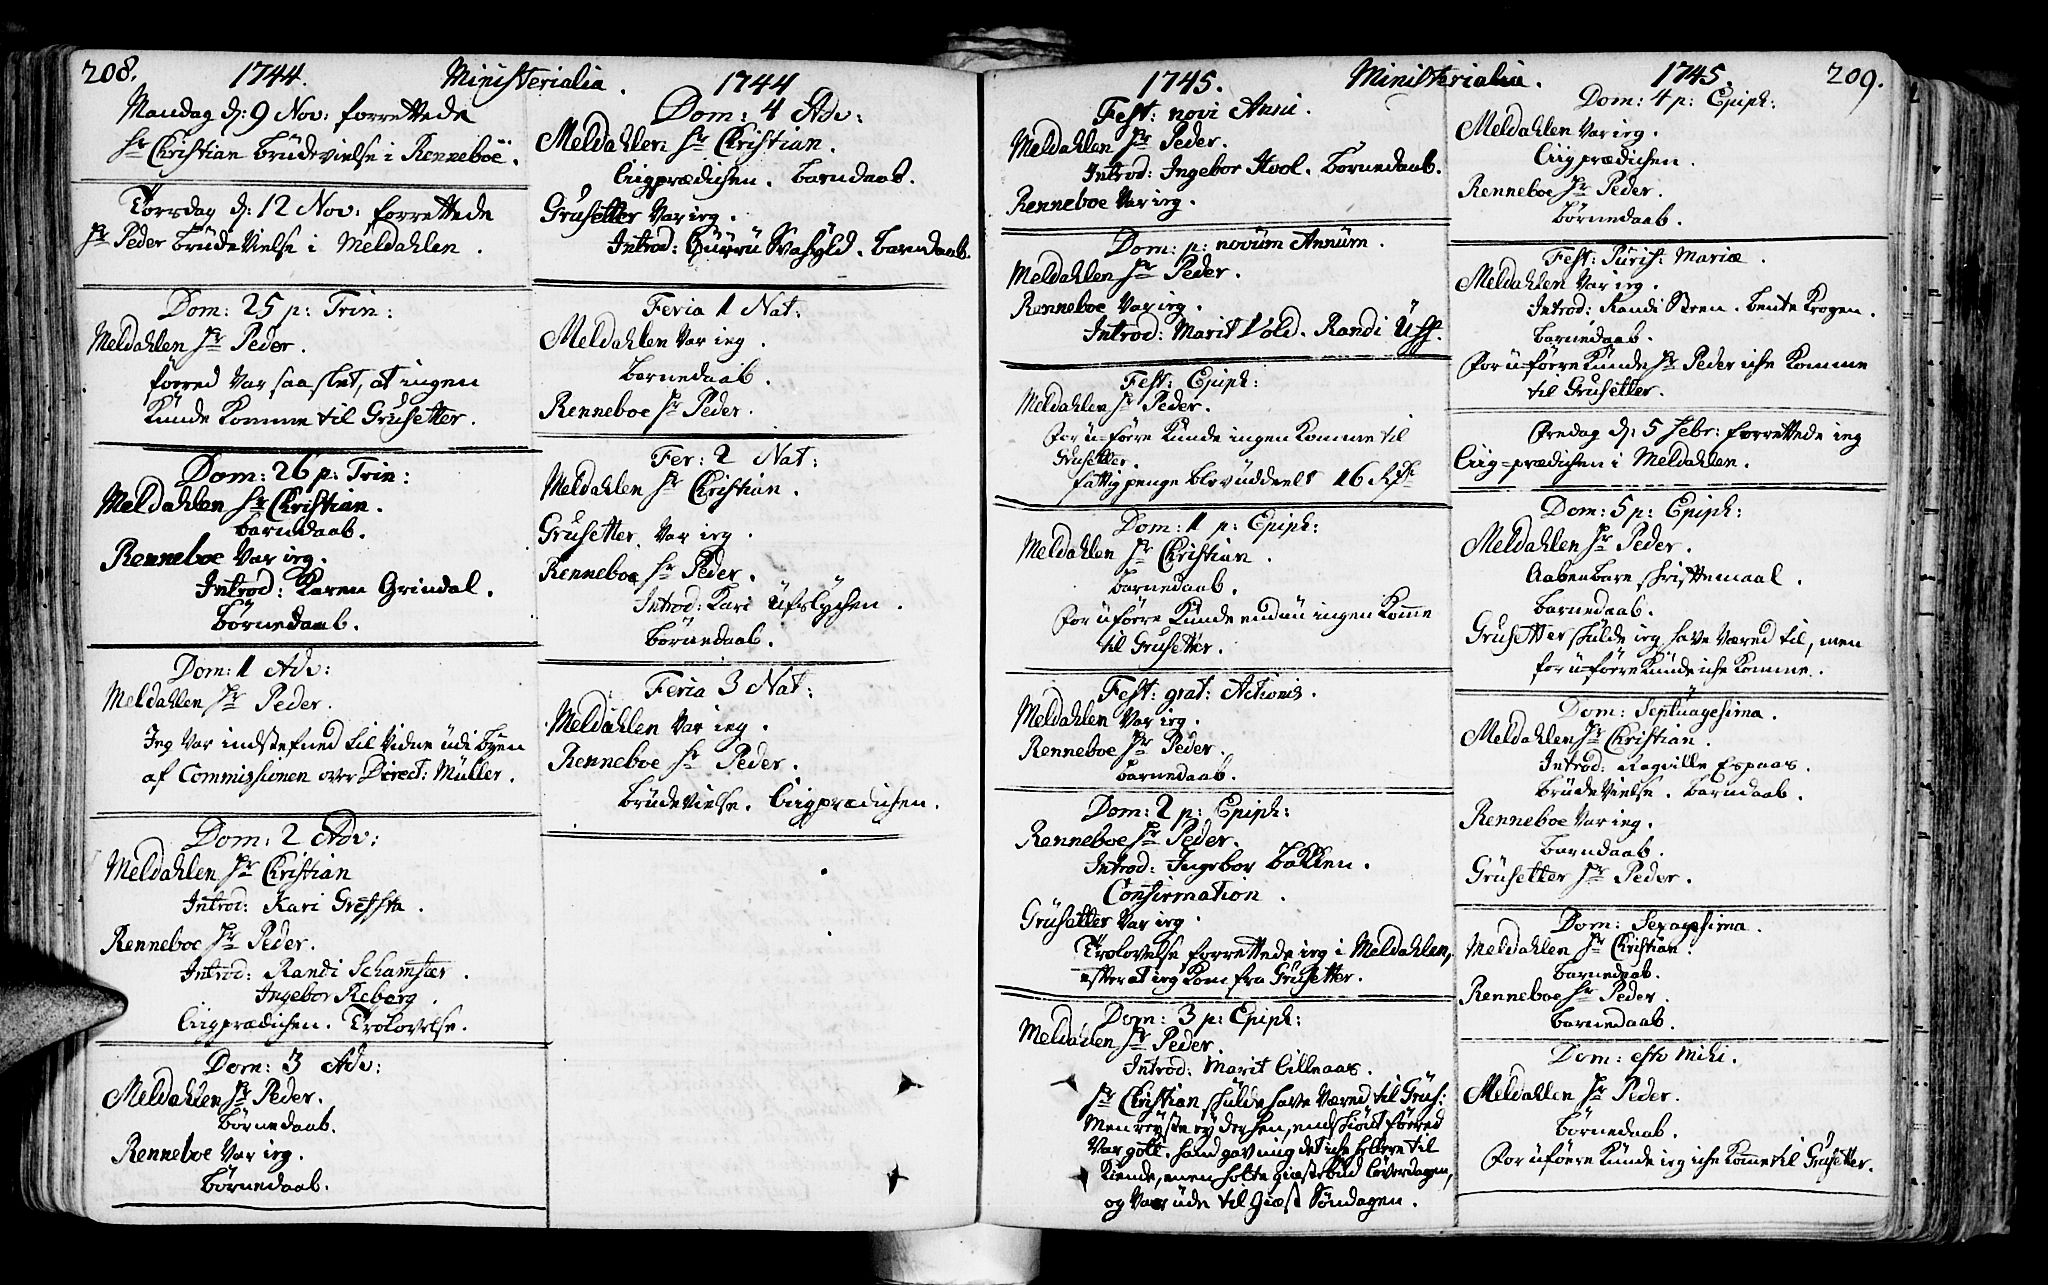 208. 1744. Ministerialia. 1744
Mandag d: 9 Nov: forrettede
Hr Christian brüdevielse i Renneboe.
Torsdag d: 12 Nov: forrettede
Hr Peder brüdevielse i Meldahlen.
Dom: 25 p: Trin:
Meldahlen Hr Peder.
förred var saa slet, at ingen
Künde komme til Grüsetter.
Dom: 26 p: Trin:
Meldahlen Hr Christian.
barnedaab.
Renneboe var ieg.
Introd: Karen Grindal.
börnedaab.
Dom: 1 Adv:
Meldahlen Hr Peder.
Jeg var indstefned til vidne üdi byen
af Commissionen over Direct: Müller.
Dom: 2 Adv:
Meldahlen Hr Christian
Introd: Kari Gressta.
Renneboe Hr Peder.
Introd: Randi Schamfær.
Ingebor Reberg.
Liigprædichen. Trolovelse.
Dom: 3 Adv:
Meldahlen Hr Peder.
börnedaab.
Renneboe var ieg.
börnedaab.
Dom: 4 Adv:
Meldahlen Hr Christian.
Liigprædichen. barndaab.
Grüsetter var ieg.
Introd: Gürrü Svahyld. barndaab.
Feria 1 Nat:
Meldahlen var ieg.
barnedaab.
Renneboe Hr Peder.
Fer: 2 Nat:
Meldahlen Hr Christian.
Grüsetter var ieg.
Renneboe Hr Peder.
Introd: Kari üfslychen.
börnedaab.
Feria 3 Nat:
Meldahlen var ieg.
Renneboe Hr Peder.
brüdevielse. Liigprædichen.
1745. Ministerialia. 1745. 209.
Fest: novi Anni.
Meldahlen Hr Peder.
Introd: Ingebor Hool. barnedaab.
Renneboe var ieg.
Dom: p: novum Annum.
Meldahlen Hr Peder.
Renneboe var ieg.
Introd: Marit Vold. Randi Üff.
Fest: Epiph:
Meldahlen Hr Peder.
for ü-förre künde ingen komme til
Grüsetter.
fattigpenge blev üddeelt 16 Rdr
Dom: 1 p: Epiph:
Meldahlen Hr Christian.
barnedaab.
for üförre künde endnü ingen kome
til Grüsetter.
Fest: grat: Actionis.
Meldahlen var ieg.
Renneboe Hr Peder.
barnedaab.
Dom: 2 p: Epiph:
Renneboe Hr Peder.
Introd: Ingebor bakken.
Confirmation.
Grüsetter var ieg.
Trolovelse forrettede ieg i Meldahlen,
efter at ieg kom fra Grüsetter.
Dom: 3 p: Epiph:
Meldalen Hr Peder.
Introd: Marit Lilleaas.
Hr Christian skülde have væred til Grüs:
Men reyste ey derhen, endskiönt förred
var gott. Hand gav mig det iche heller til
Kiende, men holte giæstebüd löverdagen,
og var üde til Giæst Söndagen.
Dom: 4 p: Epiph:
Meldahlen var ieg.
Liigprædichen.
Renneboe Hr Peder.
börnedaab.
Fest: Purif: Mariæ.
Meldahlen var ieg.
Introd: Randi Steen. bente Krogen.
barnedaab.
for ü-förre künde Hr Peder iche komme
til Grüsetter.
Fredag d: 5 Febr: forrettede ieg
Liig-prædichen i Meldahlen.
Dom: 5 p: Epiph:
Meldahlen Hr Peder.
Aabenbare skriftemaal.
barnedaab.
Grüsetter skülde ieg have væred til, men
for ü-förre künde iche komme.
Dom: Septuagesima.
Meldahlen Hr Christian.
Introd: Ragnille Espaas.
brüdevielse. barndaab.
Renneboe var ieg.
barndaab.
Grüsetter Hr Peder.
Dom: Sexagesima.
Meldahlen Hr Christian.
barnedaab.
Renneboe Hr Peder.
barnedaab.
Dom: esto mihi.
Meldahlen Hr Peder.
börnedaab.
For üföere künde ieg iche kome til Grüsetter.